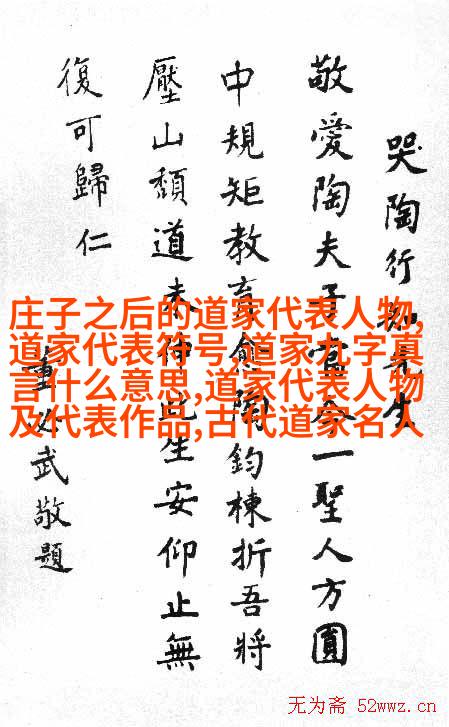 哭陶行知先生
敬愛陶夫子當今一聖人方圓
中規矩教育愈陶鈞棟折吾將
壓山頹道未伸此生安仰止無
復可歸仁
董必武敬題
庄子之后的道家代表人物,
道家代表符号,道家九字真
言什么意思,道家代表人物
及代表作品,古代道家名人
无为斋 52wwz.cn